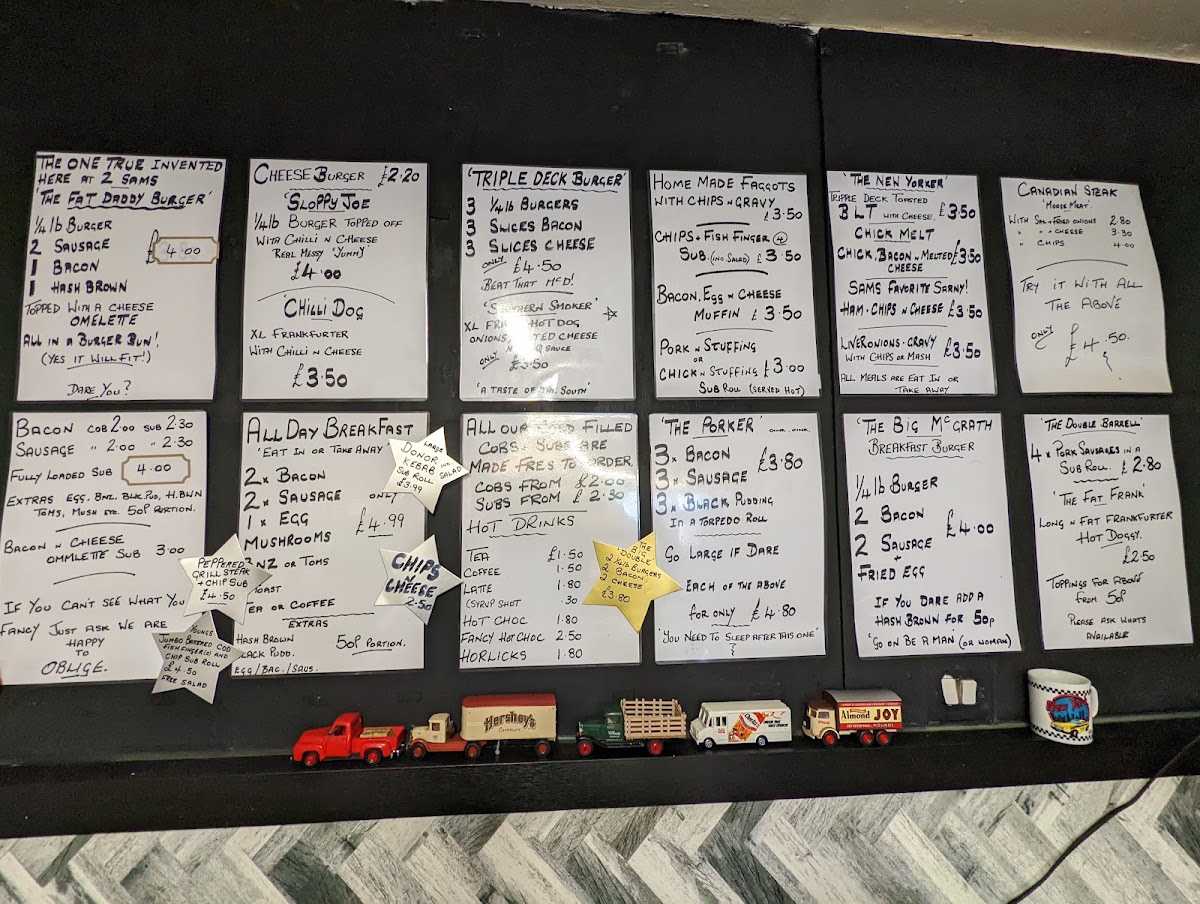 THE ONE TRUE INVENTED
HERE AT 2 SAMS
'THE FAT DADDY BURGER'
1/4lb BURGER
2 SAUSAGE £4.00
1 BACON
1 HASH BROWN
TOPPED WITH A CHEESE
OMELETTE
ALL IN A BURGER BUN!
(YES IT WILL FIT!)
DARE YOU?
CHEESE BURGER £2.20
'SLOPPY JOE
1/4lb BURGER TOPPED OFF
WITH CHILLI N CHEESE
'REAL MESSY 'YUMM'
£4.00
'CHILLI DOG
XL FRANKFURTER
WITH CHILLI N CHEESE
£3.50
'TRIPLE DECK BURGER'
3 1/4lb BURGERS
3 SLICES BACON
3 SLICES CHEESE
ONLY £4.50
BEAT THAT McD!
'SOUTHERN SMOKER'
XL HOTDOG
ONIONS, CHEESE
SAUCE
ONLY £3.50
'A TASTE OF THE SOUTH'
HOME MADE FAGGOTS
WITH CHIPS N GRAVY
£3.50
CHIPS + FISH FINGER (4)
SUB. (INC. SALAD) £3.50
BACON, EGG N CHEESE
MUFFIN £3.50
PORK N STUFFING
OR
CHICK N STUFFING £3.00
SUB ROLL (SERVED HOT)
'THE NEW YORKER'
TRIPPLE DECK TOASTED
BLT WITH CHEESE. £3.50
CHICK MELT
CHICK, BACON N MELTED £3.50
CHEESE
SAMS FAVORITE SARNY!
HAM. CHIPS N CHEESE £3.50
LIVER ONIONS . GRAVY £3.50
WITH CHIPS OR MASH
ALL MEALS ARE EAT IN OR
TAKE AWAY
CANADIAN STEAK
'MOOSE MEAT'.
WITH SAL + FRIED ONIONS 2.80
" " + CHEESE 3.30
" CHIPS 4.00
TRY IT WITH ALL
THE ABOVE
ONLY £4.50.
BACON COB 2.00 SUB 2.30
SAUSAGE " 2.00 " 2.30
FULLY LOADED SUB 4.00
EXTRAS EGG, BNZ, BLK PUD, H.BWN
TOMS, MUSH ETC. 50P PORTION.
BACON N CHEESE
OMMLETTE SUB 3.00
IF YOU CAN'T SEE WHAT YOU
FANCY JUST ASK WE ARE
HAPPY
TO
OBLIGE.
PEPPERED
GRILL STEAK
+ CHIP SUB
£4.50
JUMBO BATTERED COD
FISH FINGER(S) AND
CHIP SUB ROLL
£4.50
FREE SALAD
ALL DAY BREAKFAST
'EAT IN OR TAKE AWAY
2 x BACON
2 x SAUSAGE ONLY
1 x EGG £4.99
MUSHROOMS
BNZ OR TOMS
TOAST
TEA OR COFFEE
EXTRAS
HASH BROWN 50P PORTION.
BLACK PUDD.
EGG/BAC./SAUS.
LARGE
DONOR
KEBAB INC
SUB ROLL SALAD
£3.99
CHIPS
N
CHEESE
2.50
ALL OUR FOOD FILLED
COBS . SUBS ARE
MADE FRES TO ORDER.
COBS FROM £2.00
SUBS FROM £2.30
HOT DRINKS
TEA £1.50
COFFEE 1.50
LATTE 1.80
(SYRUP SHOT .30
HOT CHOC 1.80
FANCY HOT CHOC 2.50
HORLICKS 1.80
THE
BIG
'DOUBLE'
2 1/4lb BURGERS
2 BACON
2 CHEESE
£3.80
'THE PORKER'
3x BACON £3.80
3x SAUSAGE
3x BLACK PUDDING
IN A TORPEDO ROLL
GO LARGE IF DARE
EACH OF THE ABOVE
FOR ONLY £4.80
'YOU NEED TO SLEEP AFTER THIS ONE'
'THE BIG McGRATH
BREAKFAST BURGER
1/4lb BURGER
2 BACON £4.00
2 SAUSAGE
FRIED EGG
IF YOU DARE ADD A
HASH BROWN FOR 50P
'GO ON BE A MAN (OR WOMAN)
'THE DOUBLE BARRELL'
4 x PORK SAUSAGES IN A
SUB ROLL. £2.80
'THE FAT FRANK'
LONG N FAT FRANKFURTER
HOT DOGGY.
£2.50
TOPPINGS FOR ABOVE
FROM 50P
PLEASE ASK WHATS
AVAILABLE
HERSHEY'S
Almond JOY
New York